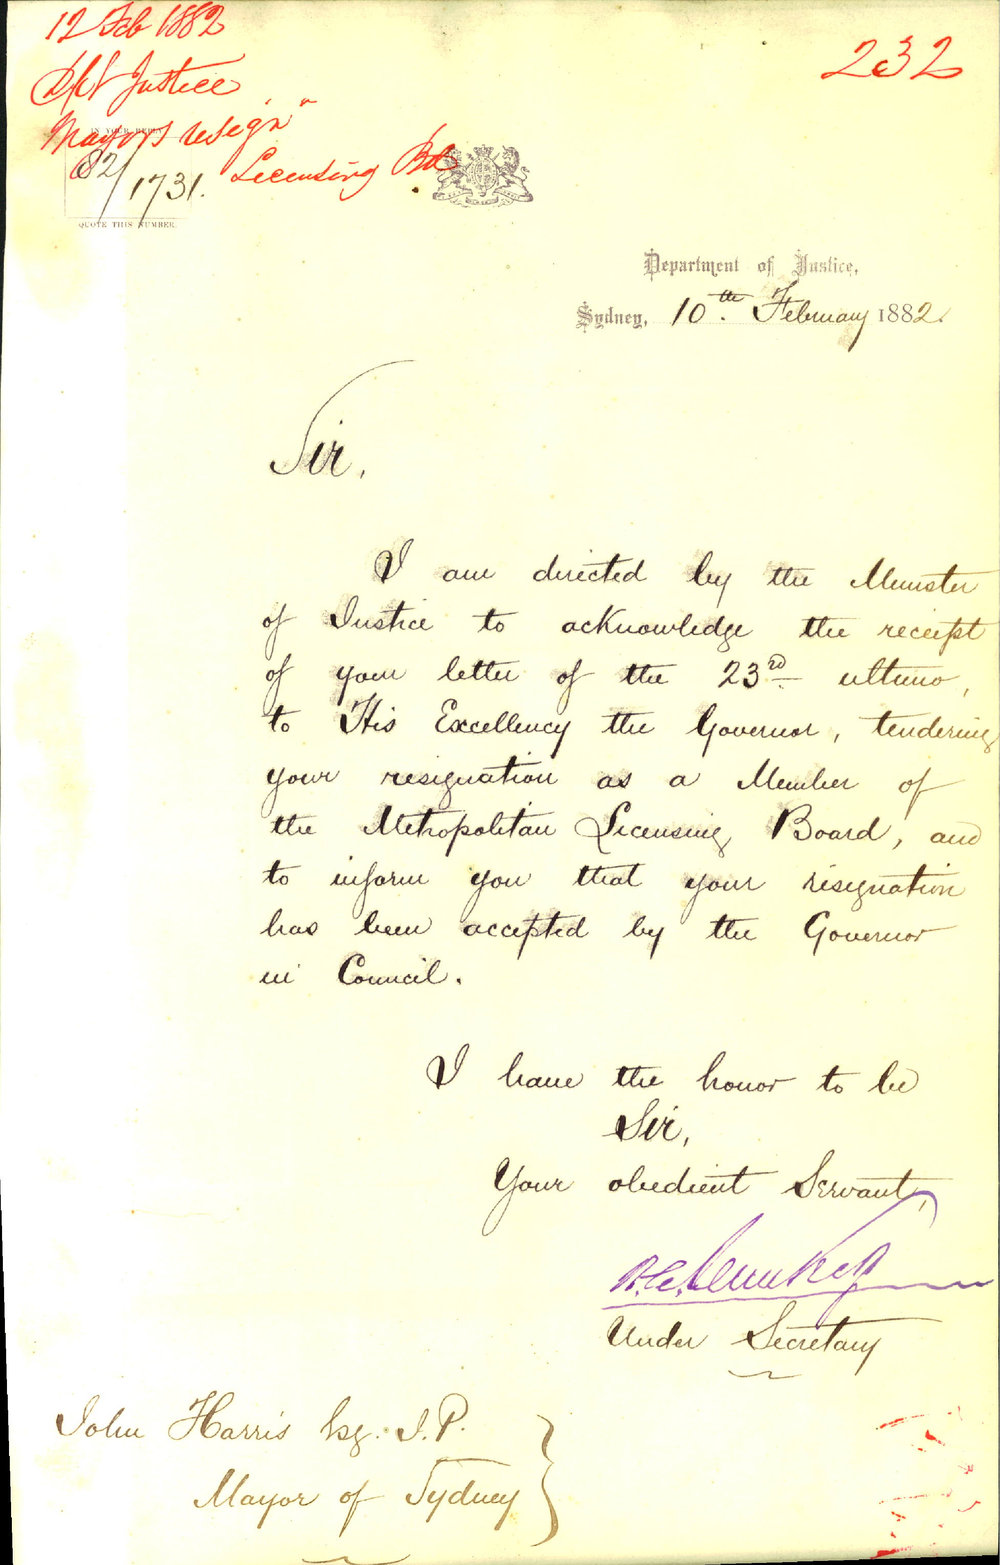 12 Feb 1882
Dpt Justice
Mayors resign"
Licensing Bd
232
IN YOUR REPLY
82/1731.
QUOTE THIS NUMBER.
Department of Justice,
Sydney, 10th February 1882.
Sir,
I am directed by the Minister
of Justice to acknowledge the receipt
of your letter of the 23rd ultimo,
to His Excellency the Governor, tendering
your resignation as a Member of
the Metropolitan Licensing Board, and
to inform you that your resignation
has been accepted by the Governor
in Council.
I have the honor to be
Sir,
Your obedient Servant,
Under Secretary
John Harris Esq. J.P.
Mayor of Sydney